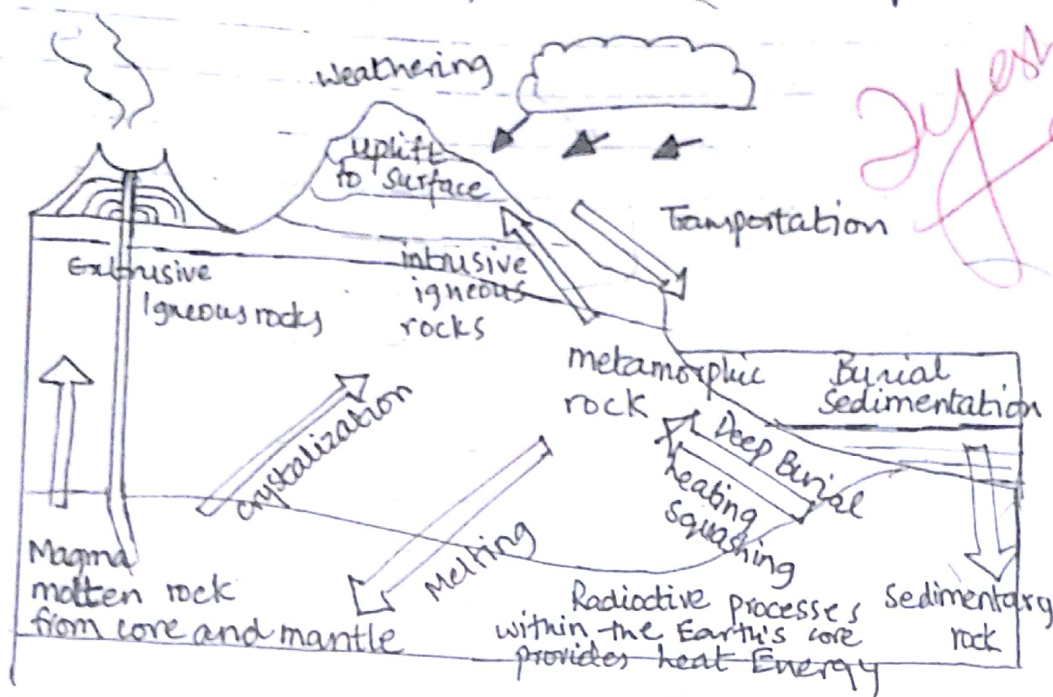 Weathering
Uplift
to surface
Transportation
Extrusive
Igneous rocks
intrusive
igneous
rocks
metamorphic
rock
Burial
Sedimentation
Deep Burial
heating
squashing
crystalization
Melting
Magma
molten rock
from core and mantle
Radioctive processes
within the Earth's core
provides heat Energy
Sedimentary
rock